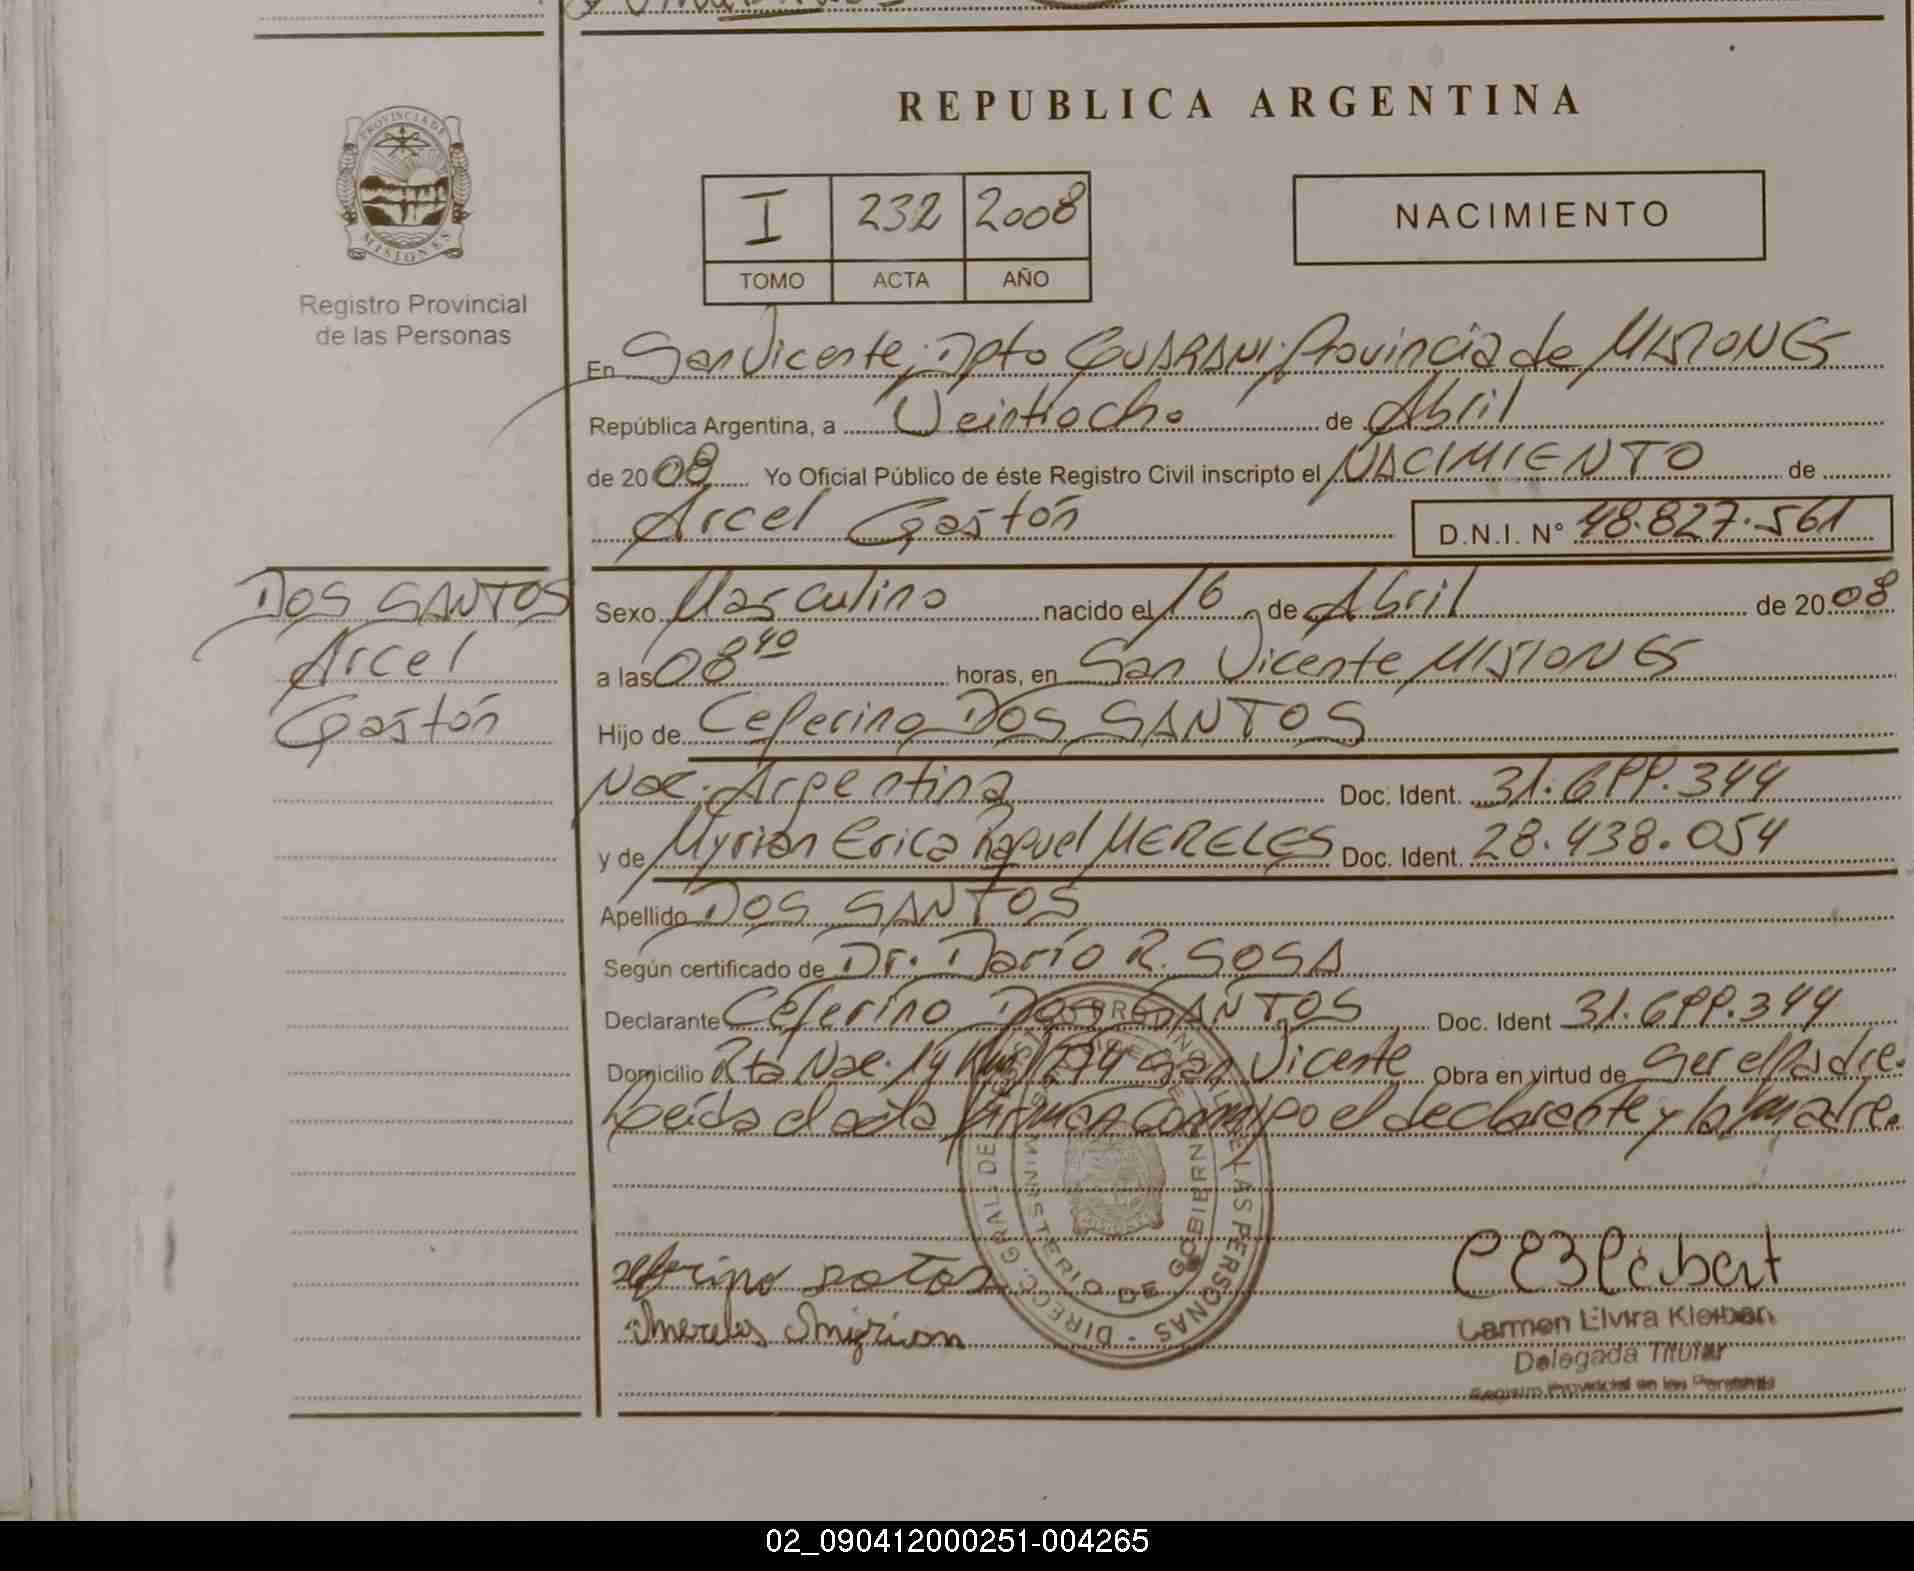 REPUBLICA ARGENTINA
PROVINCIA DE
MISIONES
Registro Provincial
de las Personas
I 232 2008
TOMO ACTA AÑO
NACIMIENTO
En San Vicente, Dpto GUARANI, Provincia de MISIONES
República Argentina, a Veintiocho de Abril
de 2008 Yo Oficial Público de éste Registro Civil inscripto el NACIMIENTO de
Arcel Gastón D.N.I. N° 48.827.561
DOS SANTOS
Arcel
Gastón
Sexo Masculino nacido el 16 de Abril de 2008
a las 08 40 horas, en San Vicente MISIONES
Hijo de Ceferino DOS SANTOS
Nac. Argentina Doc. Ident. 31.699.344
y de Myrian Erica Raquel MERELES Doc. Ident. 28.438.054
Apellido DOS SANTOS
Según certificado de Dr. Darío R. SOSA
Declarante Ceferino DOS SANTOS Doc. Ident 31.699.344
Domicilio Rta Nac. 14 Km San Vicente Obra en virtud de Ser el Padre.
Leída el acta firman conmigo el declarante y la madre.
DIRECC. GRAL. DE LAS PERSONAS
MINISTERIO DE GOBIERNO
Mereles Miyrian
Carmen Elvira
Delegada Titular
Registro Provincial de las Personas
02_090412000251-004265